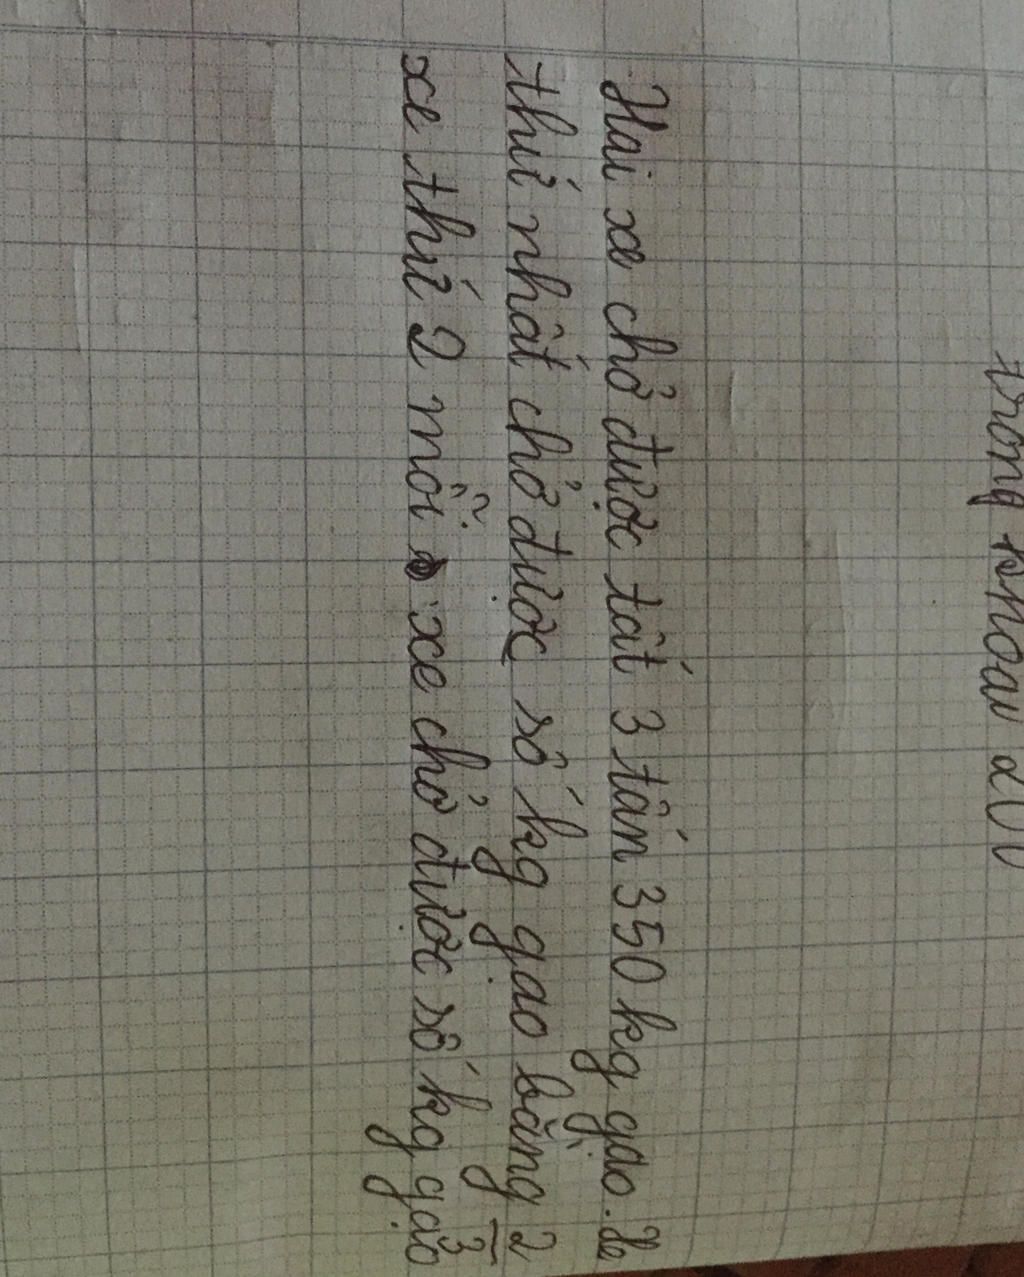 trong khoai 200
Hai xe chở được tất 3 tấn 350 kg gạo. Xe
thứ nhất chở được số kg gạo bằng 2/3
xe thứ 2 mỗi xe chở được số kg gạo